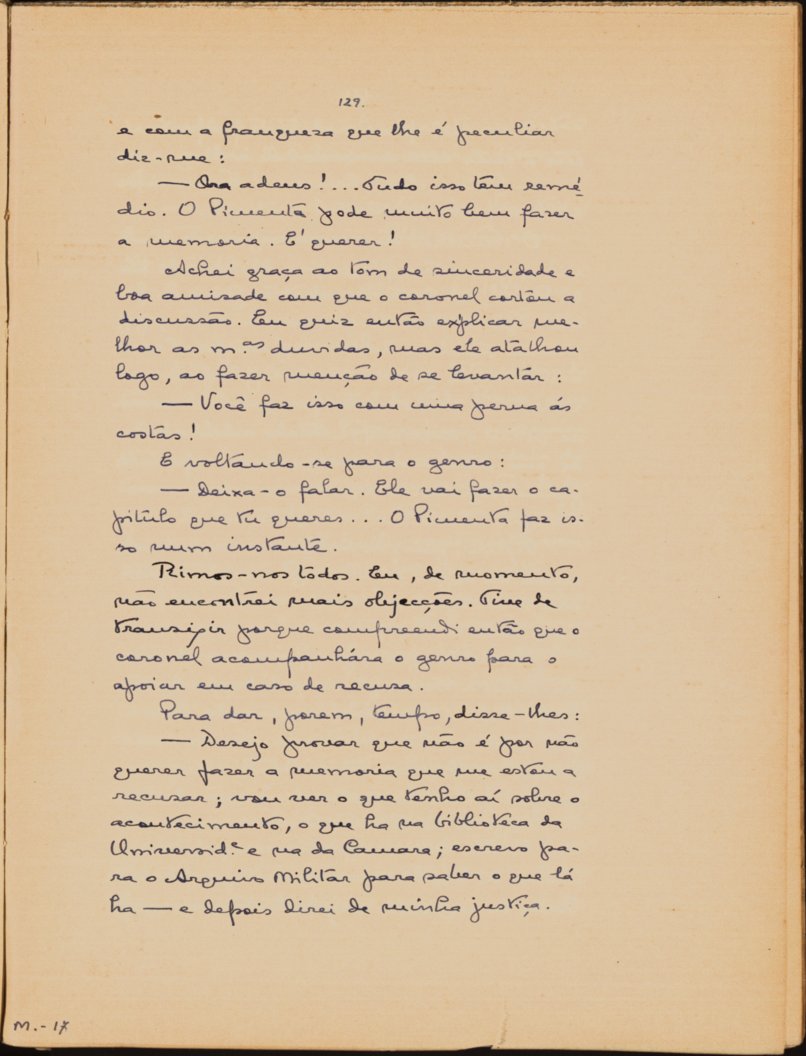 129.
e com a franqueza que lhe é peculiar
diz-me :
— Ora adeus!... Tudo isso tem remé-
dio. O Pimenta pode muito bem fazer
a memoria. E' querer!
Achei graça ao tom de sinceridade e
boa amisade com que o coronel cortou a
discussão. Eu quiz então explicar me-
lhor as m.as duvidas, mas ele atalhou
logo, ao fazer menção de se levantar :
— Você faz isso com uma perna ás
costas!
E voltando-se para o genro :
— Deixa-o falar. Ele vai fazer o ca-
pitulo que tu queres... O Pimenta faz is-
so num instante.
Rimos-nos todos. Eu, de momento,
não encontrei mais objecções. Tive de
transigir porque compreendi então que o
coronel acompanhára o genro para o
apoiar em caso de recusa.
Para dar, porem, tempo, disse-lhes :
— Desejo provar que não é por não
querer fazer a memoria que me estou a
recusar; vou ver o que tenho aí sobre o
acontecimento, o que ha na biblioteca da
Universid.e e na da Camara; escrevo pa-
ra o Arquivo Militar para saber o que lá
ha — e depois direi de minha justiça.
M.- 17